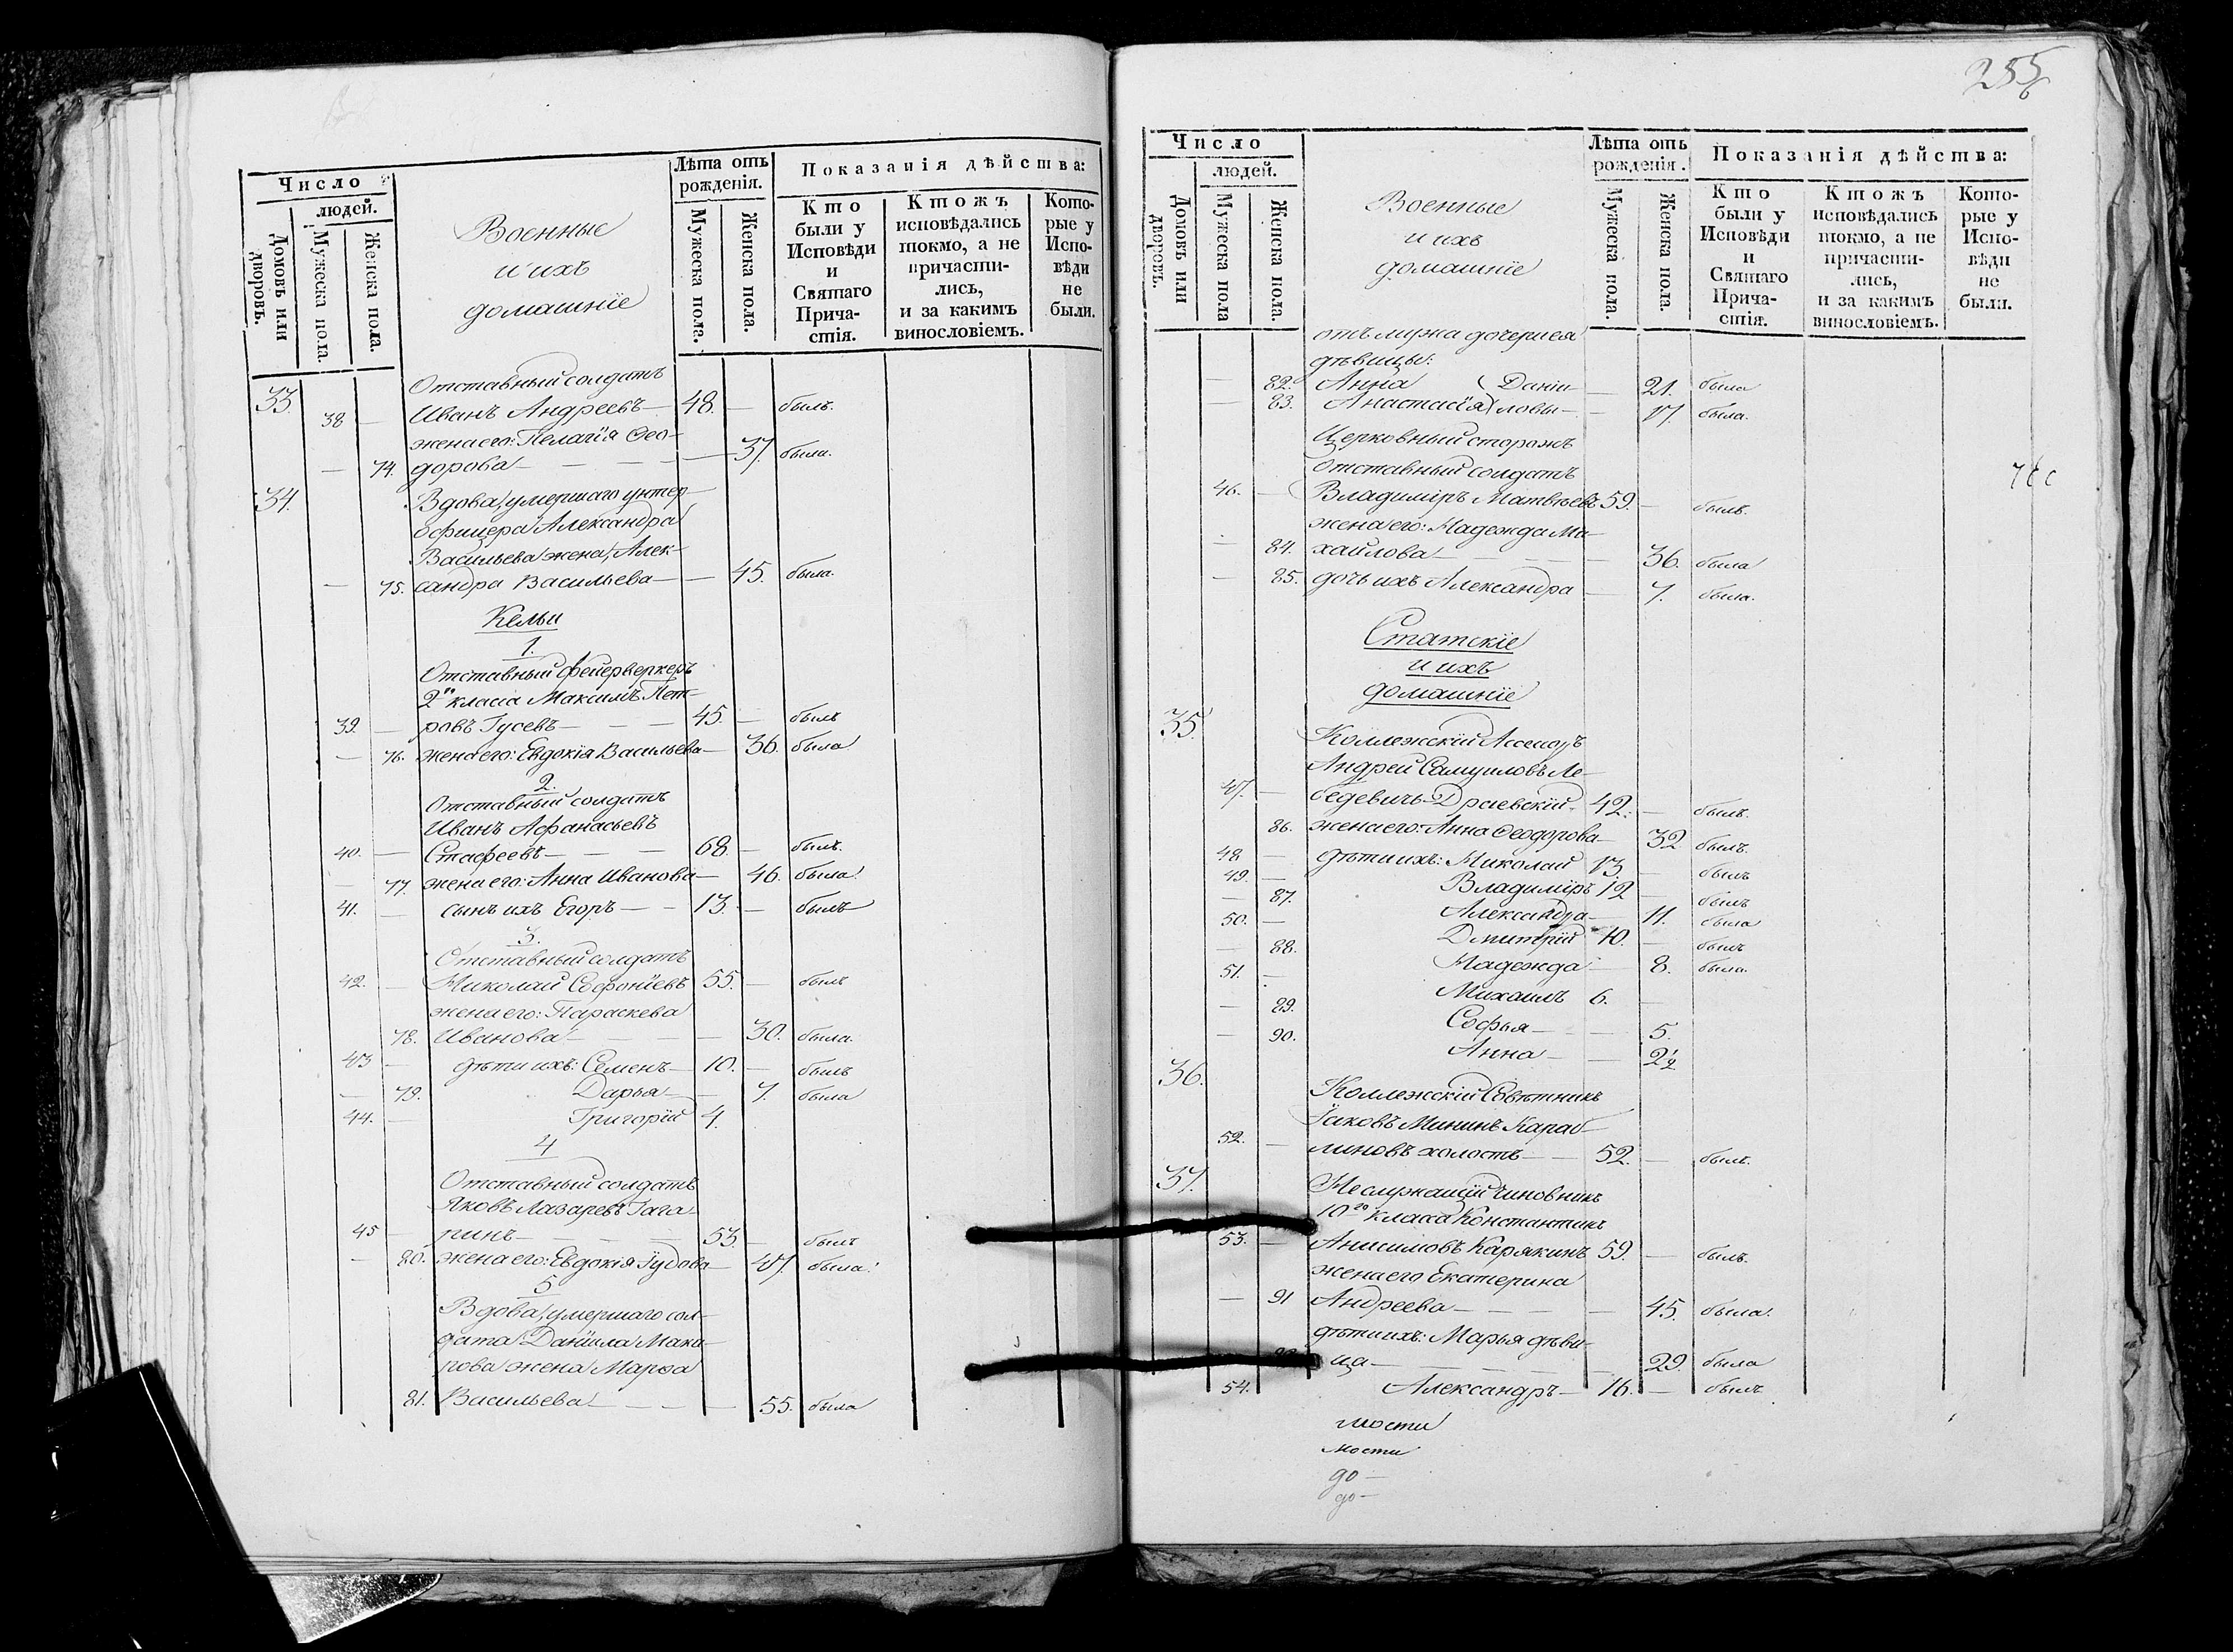 Число
людей.
Домовъ или дворовъ.
Мужеска пола.
Женска пола.
Военные
и ихъ
домашніе
Лѣта отъ рожденія.
Мужеска пола.
Женска пола.
Показанія дѣйства:
Кто были у Исповѣди и Святаго Причастія.
Ктожъ исповѣдались токмо, а не причастились, и за какимъ винословіемъ.
Которые у Исповѣди не были.
33. Отставный солдатъ
38 — Иванъ Андреевъ — 48. — былъ.
жена его: Пелагія Ѳео-
— 74. дорова — — — 37. была.
34. Вдова, умершаго унтер
офицера Александра
Васильева жена, Алек-
— 75. сандра Васильева — — 45. была.
Кельи
1.
Отставный фейерверкеръ
2го класса Максимъ Пет-
39. — ровъ Гусевъ — — — 45. — былъ
— 76. жена его: Евдокія Васильева — 36. была
2.
Отставный солдатъ
Иванъ Афанасьевъ
40. — Стафеевъ — — — 68. — былъ.
— 77. жена его: Анна Иванова — 46. была.
41. — сынъ ихъ Егоръ — — 13. — былъ
3.
Отставный солдатъ
42. — Николай Софоніевъ 55. — былъ
жена его: Параскева
78. Иванова — — — 30. была.
43 — дѣти ихъ: Семенъ — 10. — былъ
— 79. Дарья — — 7. была
44. — Григорій 4.
4
Отставный солдатъ
Яковъ Лазаревъ Гага-
45 — ринъ — — — 53. — былъ
— 80. жена его: Евдокія Іудова — 47. была.
5
Вдова, умершаго сол-
дата Даніила Мака-
рова жена Марѳа
81. Васильева — — — 55. была
255
Число
людей.
Домовъ или дворовъ.
Мужеска пола
Женска пола.
Военные
и ихъ
домашніе
Лѣта отъ рожденія.
Мужеска пола.
Женска пола.
Показанія дѣйства:
Кто были у Исповѣди и Святаго Причастія.
Ктожъ исповѣдались токмо, а не причастились, и за какимъ винословіемъ.
Которые у Исповѣди не были.
отъ мужа дочери ея
дѣвицы:
— 82. Анна (Даніи- — 21. была
— 83. Анастасія) ловы — — 17. была.
Церковный сторожъ
отставный солдатъ
46. — Владиміръ Матвѣевъ 59. — былъ.
жена его: Надежда Ми-
— 84. хайлова — — — 36. была
— 85. дочь ихъ Александра — 7. была.
Статскіе
и ихъ
домашніе
35. Коллежскій Ассесоръ
Андрей Самуиловъ Ле-
47. — бедевичъ-Драевскій. 42. — былъ.
86. жена его: Анна Ѳеодорова — 32 былъ.
48 — дѣти ихъ: Николай 13. — былъ
49. — Владиміръ 12 — былъ
— 87. Александра — 11. была
50. — Дмитрій 10. — былъ
— 88. Надежда — 8. была.
51. — Михаилъ 6. —
— 89. Софья — — 5.
— 90. Анна — — 2½
36. Коллежскій Совѣтникъ
Іаковъ Мининъ Караб-
52. — линовъ холостъ — — 52. — былъ.
37. Неслужащій чиновникъ
10го класса Константинъ
53. — Анисимовъ Карякинъ 59. — былъ.
жена его Екатерина
— 91 Андреева — — — — 45. была.
дѣти ихъ: Марья дѣви-
ца — — — — 29. была
54. Александръ — 16. — былъ
мости
мости
до —
до —